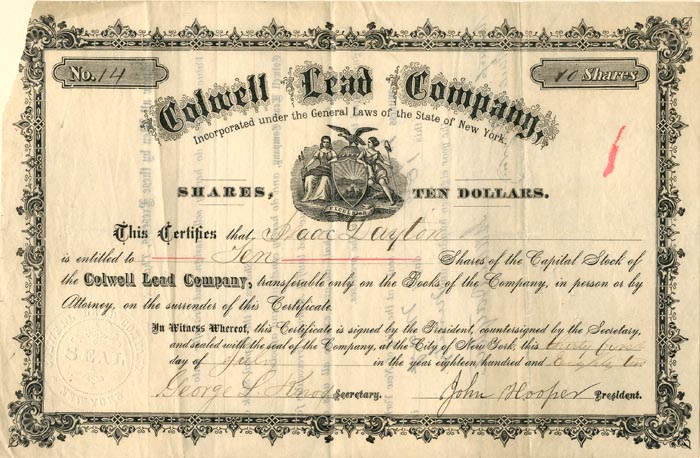 No. 14
10 Shares
Colwell Lead Company,
Incorporated under the General Laws of the State of New York.
EXCELSIOR
SHARES, TEN DOLLARS.
This Certifies that Isaac Dayton
is entitled to Ten Shares of the Capital Stock of
the Colwell Lead Company, transferable only on the Books of the Company, in person or by
Attorney, on the surrender of this Certificate.
In Witness Whereof, this Certificate is signed by the President, countersigned by the Secretary,
and sealed with the seal of the Company, at the City of New York, this twenty
day of in the year eighteen hundred and Eighty two
SEAL
George S. Secretary. John Hooper President.